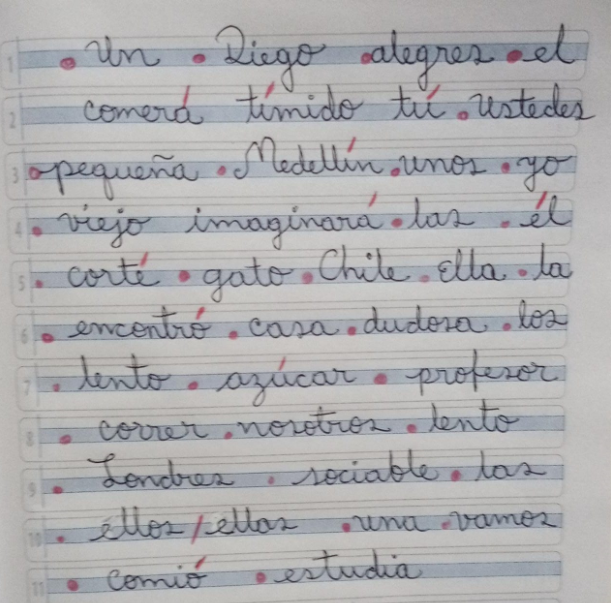 1 • Un • Diego • alegres • el
2 comerá tímido tú • ustedes
3 • pequeña • Medellín • unos • yo
4 • viejo imaginará • las • él
5 • corté • gato • Chile • ella • la
6 • encontró • casa • dudosa • los
7 • lento • azúcar • profesor
8 • correr • nosotros • lento
9 • Londres • sociable • las
10 • ellos/ellas • una • vamos
11 • comió • estudia